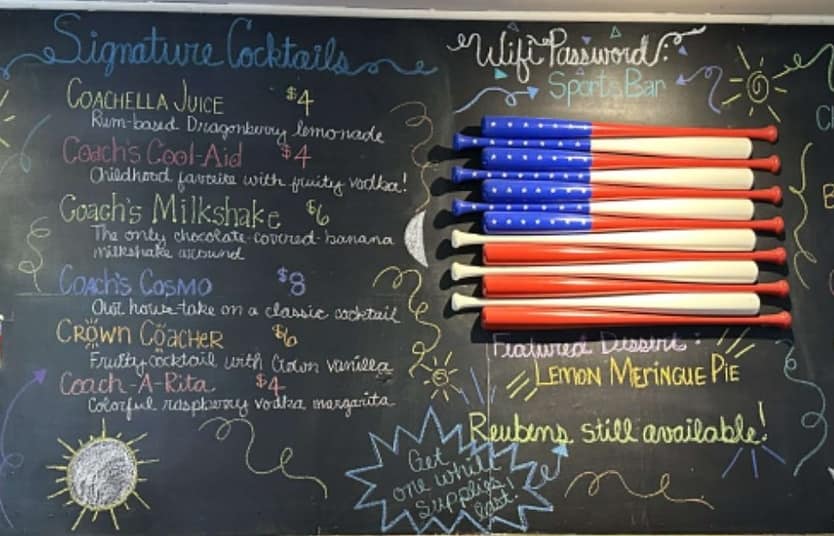 Signature Cocktails
COACHELLA JUICE $4
Rum-based Dragonberry lemonade
Coach's Cool-Aid $4
Childhood favorite with fruity vodka!
Coach's Milkshake $6
The only chocolate-covered-banana
milkshake around
Coach's Cosmo $8
Our house-take on a classic cocktail
CROWN COACHER $6
Fruity cocktail with Crown vanilla
Coach-A-Rita $4
Colorful raspberry vodka margarita
Wifi Password:
Sports Bar
Featured Dessert:
LEMON MERINGUE PIE
Reubens still available!
Get
one while
supplies
last!